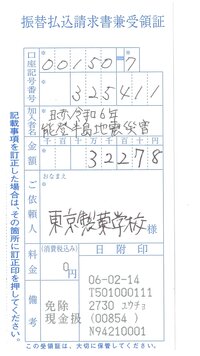 振替払込請求書兼受領証
口座記号番号
00150=7
325411
加入者名
令和6年
能登半島地震災害
金額
千 百 十 万 千 百 十 円
32278
ご依頼人
おなまえ
東京製菓学校 様
料金
(消費税込み)
0円
日附印
備考
06-02-14
T501000111
免除 2730 ユウチョ
現金扱 (00854 )
N94210001
記載事項を訂正した場合は、その箇所に訂正印を押してください。
この受領証は、大切に保管してください。